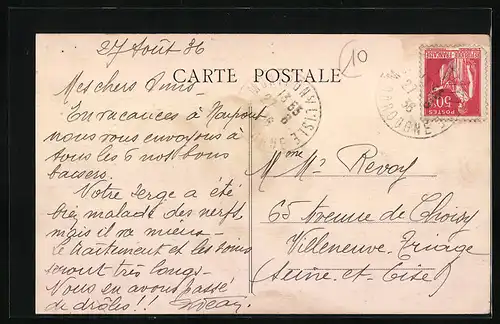 27 Août 36
10
CARTE POSTALE
Mes chers Amis
En vacances à
nous vous envoyons à
tous les 6 nos bons
baisers.
Votre Serge a été
bien malade des nerfs
mais il va mieux.
Le traitement et les soins
seront très longs.
Nous en avons passé
de drôles !!
Mme Mr Revoy
65 Avenue de Choisy
Villeneuve-Triage
(Seine-et-Oise)
DORDOGNE
POSTES
50c